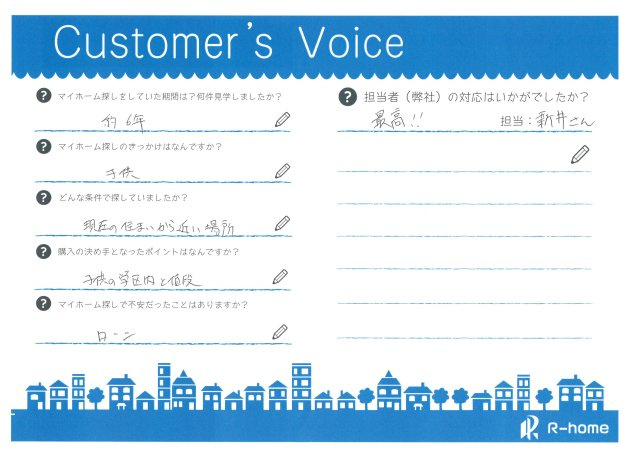 Customer's Voice
マイホーム探しをしていた期間は？何件見学しましたか？
約6年
マイホーム探しのきっかけはなんですか？
子供
どんな条件で探していましたか？
現在の住まいから近い場所
購入の決め手となったポイントはなんですか？
子供の学区内と値段
マイホーム探しで不安だったことはありますか？
ローン
担当者（弊社）の対応はいかがでしたか？
最高!! 担当：新井さん
R-home